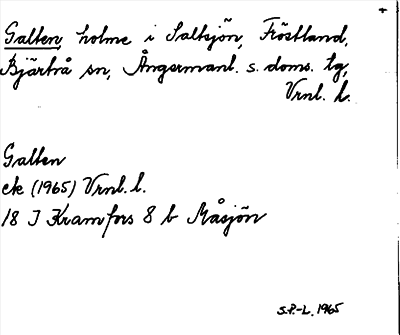 Galten, holme i Saltsjön, Fröstland,
Bjärtrå sn, Ångermanl. s. doms. tg,
Vrnl. l.
Galten
ek (1965) Vrnl. l.
18 I Kramfors 8 b Måsjön
S.P.-L. 1965